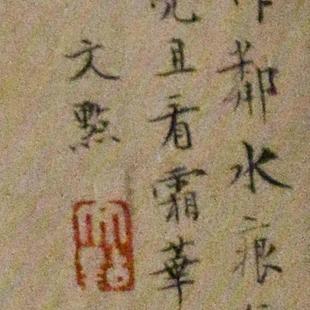 鄰水痕
且看霜華
文點